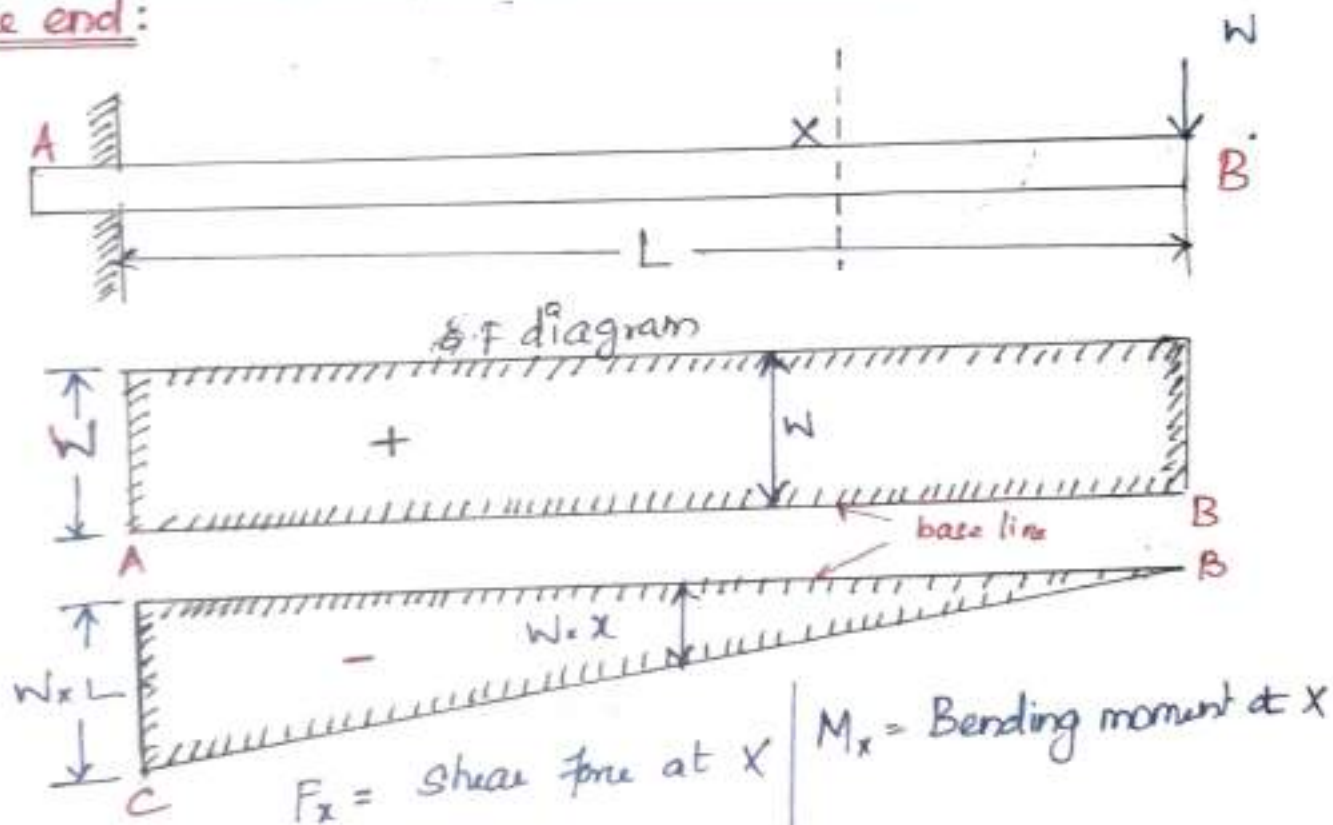 e end:
W
A
X
B
L
S.F diagram
W
+
W
A
base line
B
B
W.x
W×L
-
C
Fx = Shear force at X
Mx = Bending moment at X